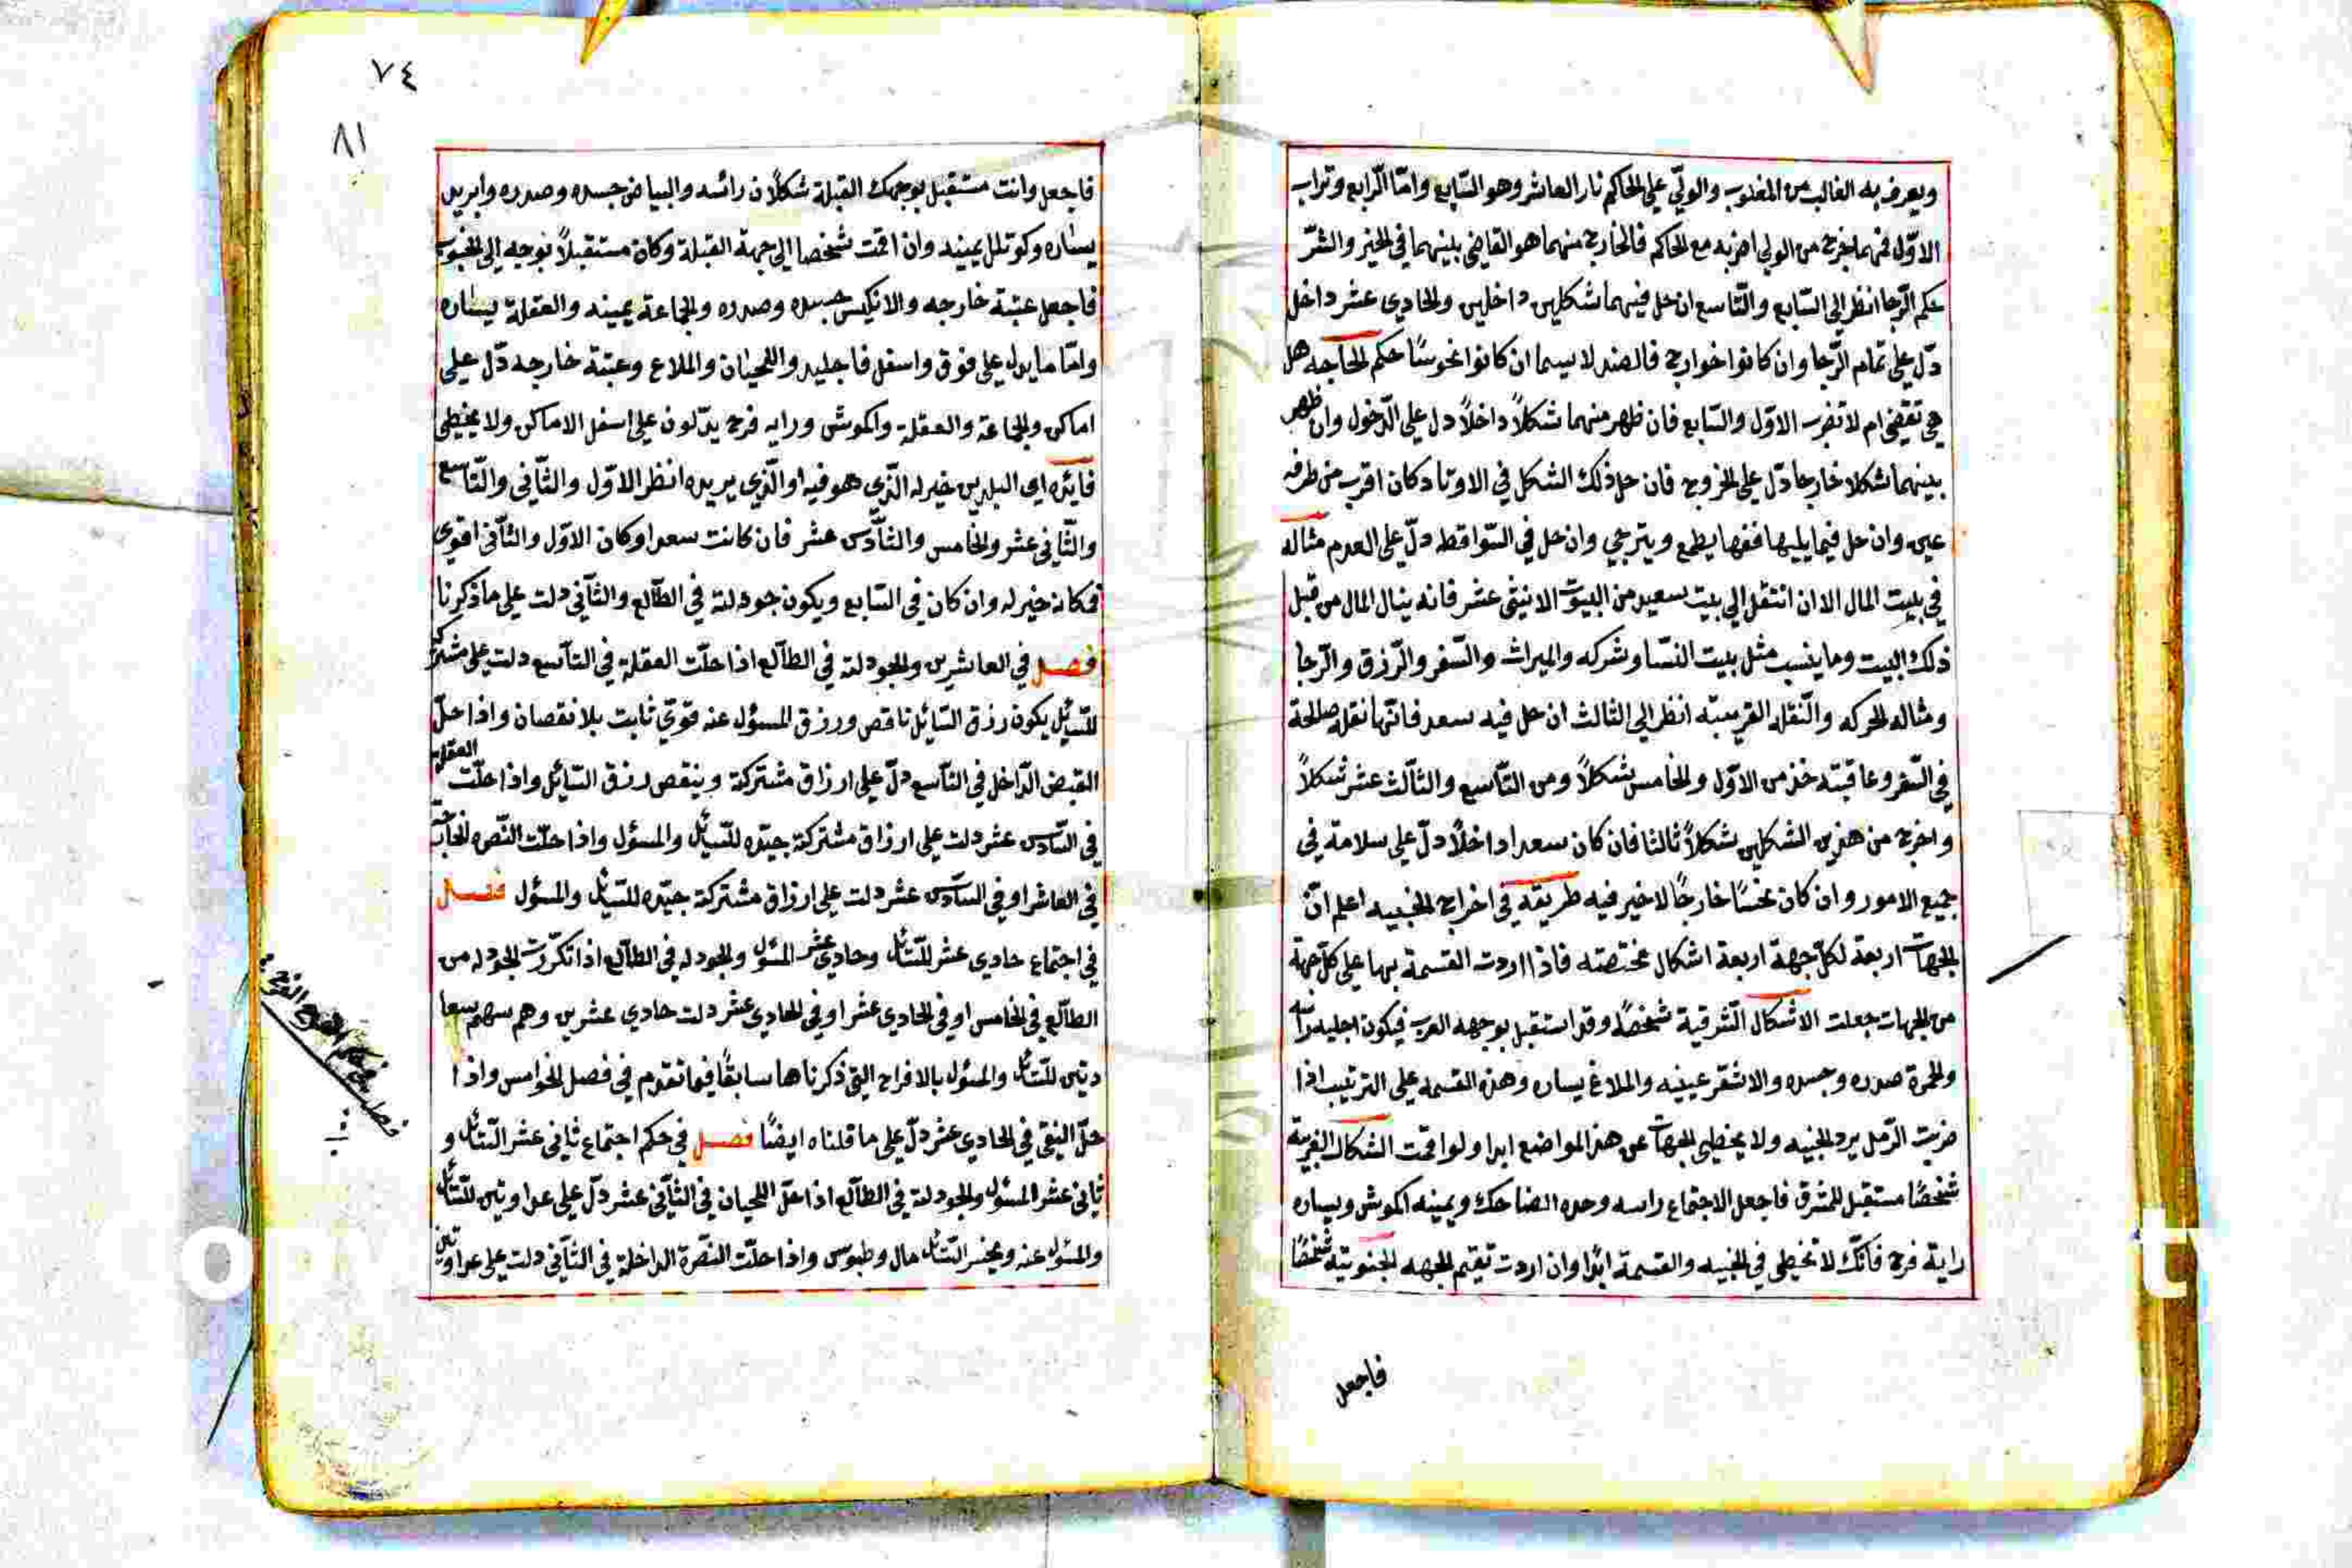 ويعرف به الغالب من المغلوب والولي على الحاكم نار العاشر وهو السّابع وامّا الرّابع وتراب
الاوّل فمهما يخرج من الولي اضربه مع الحاكم فالخارج منهما هو القاضي بينهما في الخير والشرّ
حكم الرّجا انظر الى السّابع والتّاسع ان حل فيهما شكلين داخلين والحادي عشر داخل
دلّ على تمام الرّجا وان كانوا خوارج فالضد لا سيما ان كانوا نحوسًا حكم الحاجه هل
هي تقضى ام لا تضرب الاوّل والسّابع فان ظهر منهما شكلاً داخلاً دل على الدّخول وان ظهر
بينهما شكلا خارجا دلّ على الخروج فان حل ذلك الشكل في الاوتاد كان اقرب من طرفه
عين وان حل فيما يليها ففيها يطمع ويترجي وان حل في السّواقط دلّ على العدم مثاله
في بيت المال الا ان انتقل الى بيت سعيد من البيوت الاثنى عشر فانه ينال المال من قبل
ذلك البيت وما ينسب مثل بيت النسّا وشركه والميراث والسّفر والرّزق والرّجا
ومثاله الحركه والنّقله القريبته انظر الى الثالث ان حل فيه سعد فانّها نقله صالحة
في السّفر وعاقبته خذ من الاوّل والخامس شكلاً ومن التّاسع والثّالث عشر شكلاً
واخرج من هذين الشكلين شكلاً ثالثا فان كان سعدا داخلاً دلّ على سلامة في
جميع الامور وان كان نحسًا خارجًا لا خير فيه طريقه في اخراج الخبيه اعلم انّ
الجهات اربعة لكلّ جهة اربعة اشكال مختصّته فاذا اردت القسمة بها على كلّ جهة
من الجهات جعلت الاشكال الشّرقية شخصًا وقد استقبل بوجهه الغرب فيكون اجليد راسه
والحمرة صدره وجسده والاشقر عينيه والملاغ يساره وهذه القسمه على الترتيب اذا
ضربت الرّمل يرد الخبيه ولا يخطى الجهات عن هذا المواضع ابدا ولو اقمت الشكال الغربية
شخصًا مستقبل المشرق فاجعل الاجتماع راسه وحده الضاحك ويمينه اكموش ويساره
راية فرح فانّك لا تخطى في الخبيه والقسمة ابدًا وان اردت تقيم الجهه الجنوبيّة شخصًا
فاجعل
٧٤
٨١
فاجعل وانت مستقبل بوجهك القبلة شكلاً راسه والبياض جسده وصدره
يساره يمينه وان اقمت شخصا الى جهة القبلة وكان مستقبلاً بوجه الى الجنوب
فاجعل عتبة خارجه والانكيس جسده وصدره والجماعة يمينه والعقلة يساره
وامّا ما يدل على فوق واسفل فاجليد واللحيان والملاغ وعتبة خارجه دلّ على
اماكن والجماعة والعقلة واكموش ورايه فرح يدّلون على اسفل الاماكن ولا يخطى
فايده اي البلدين خير له الّذي هو فيه او الّذي يريده انظر الاوّل والثّاني والتّاسع
والثّاني عشر والخامس والسّادس عشر فان كانت سعدا وكان الاوّل والثّاني اقوى
فمكانه خير له وان كان في السّابع ويكون جودلة في الطّالع والثّاني دلت على ما ذكرنا
فصل في العاشرين والجودلة في الطالع اذا حلّت العقلة في التّاسع دلت على مشتركة
للسّايل يكون رزق السّايل ناقص ورزق المسؤل عنه قويّ ثابت بلا نقصان واذا حلّ
القبض الدّاخل في التّاسع دلّ على ارزاق مشتركة وينقص رزق السّايل واذا حلّت العقلة
في السّادس عشر دلت على ارزاق مشتركة جيّده للسّايل والمسؤل واذا حلّت النّصره الخارجة
في العاشر او في السّادس عشر دلت على ارزاق مشتركة جيّده للسّايل والمسؤل فصل
في اجتماع حادي عشر السّايل وحادي عشر المسؤل والجودله في الطالع اذا تكرّرت الجودله من
الطّالع في الخامس او في الحادي عشر او في الحادي عشر دلت حادي عشرين وهم سهم سعا
دتين للسّايل والمسؤل بالافراح التي ذكرناها سابقًا فيما تقدم في فصل الخوامس واذا
حلّ النقي في الحادي عشر دلّ على ما قلناه ايضًا فصل في حكم اجتماع ثاني عشر السّايل و
ثاني عشر المسؤل والجودلة في الطالع اذا حلّ اللحيان في الثّاني عشر دلّ على عداوتين للسّايل
والمسؤل عنه ويخسر السّايل مال وطبوس واذا حلّت النّصرة الداخلة في الثّاني دلت على عداوتين